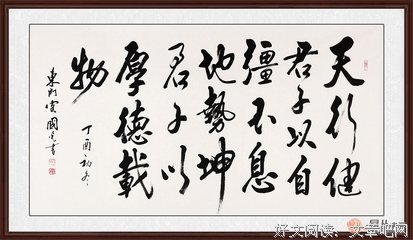 天行健
君子以自
彊不息
地勢坤
君子以
厚德載
物
丁酉初冬
國書
好文阅读，文章吧网